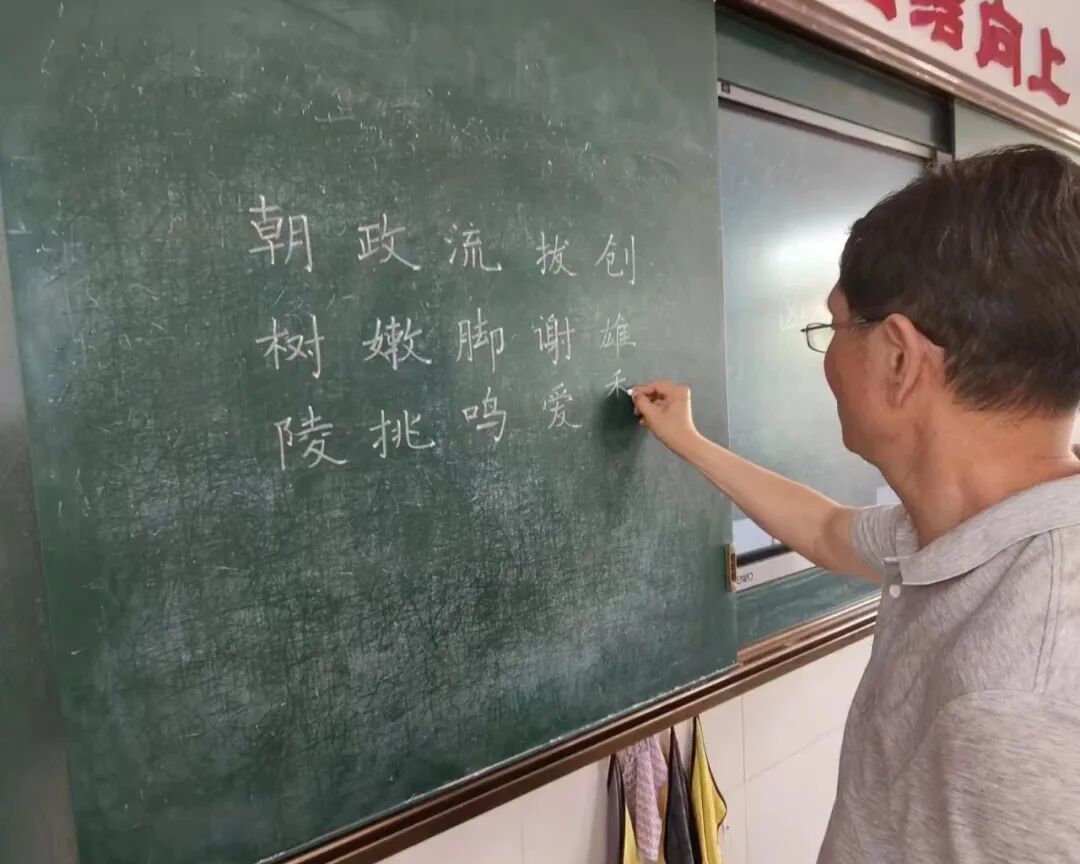 结向上
朝政流拔创
树嫩脚谢雄
陵挑鸣爱禾